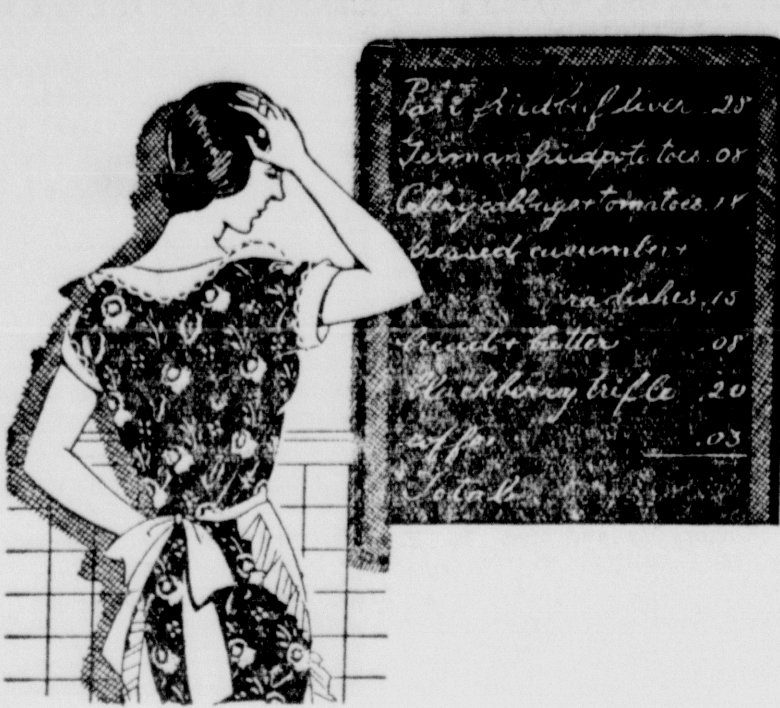 Pan fried beef liver .28
German fried potatoes .08
Celery cabbage + tomatoes .18
dressed cucumber +
radishes .15
bread + butter .08
Blackberry trifle .20
coffee .03
Total